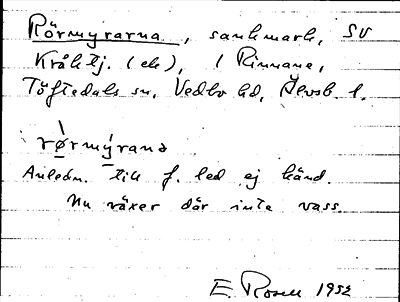 Rörmyrarna, sankmark, SV
Kråktj. (ek), / Rinnane,
Töftedals sn, Vedbo hd, Älvsb. l.
rørmýrana
Anledn. till f. led ej känd.
Nu växer där inte vass.
E. Rosell 1952